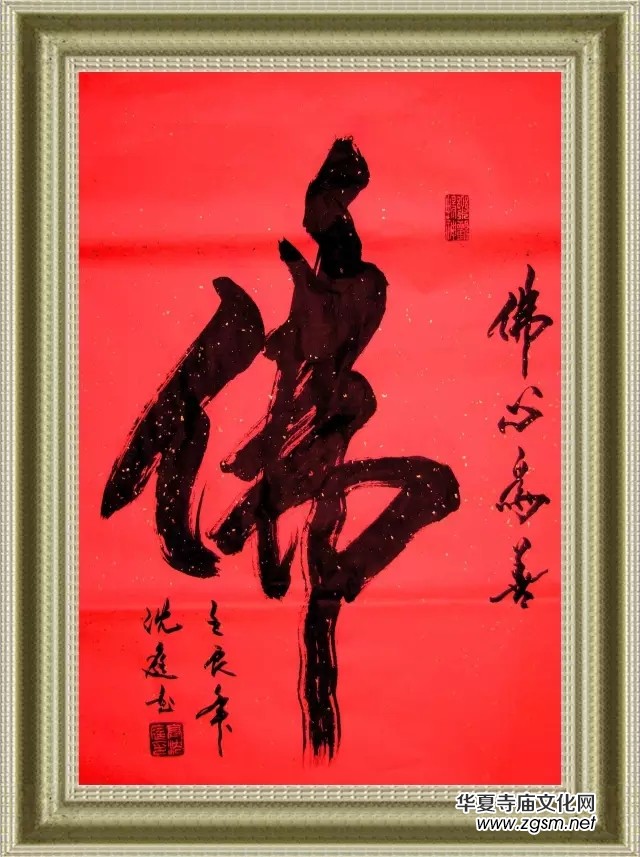 佛心為善
佛
壬辰年
沈庭书
华夏寺庙文化网
www.zgsm.net